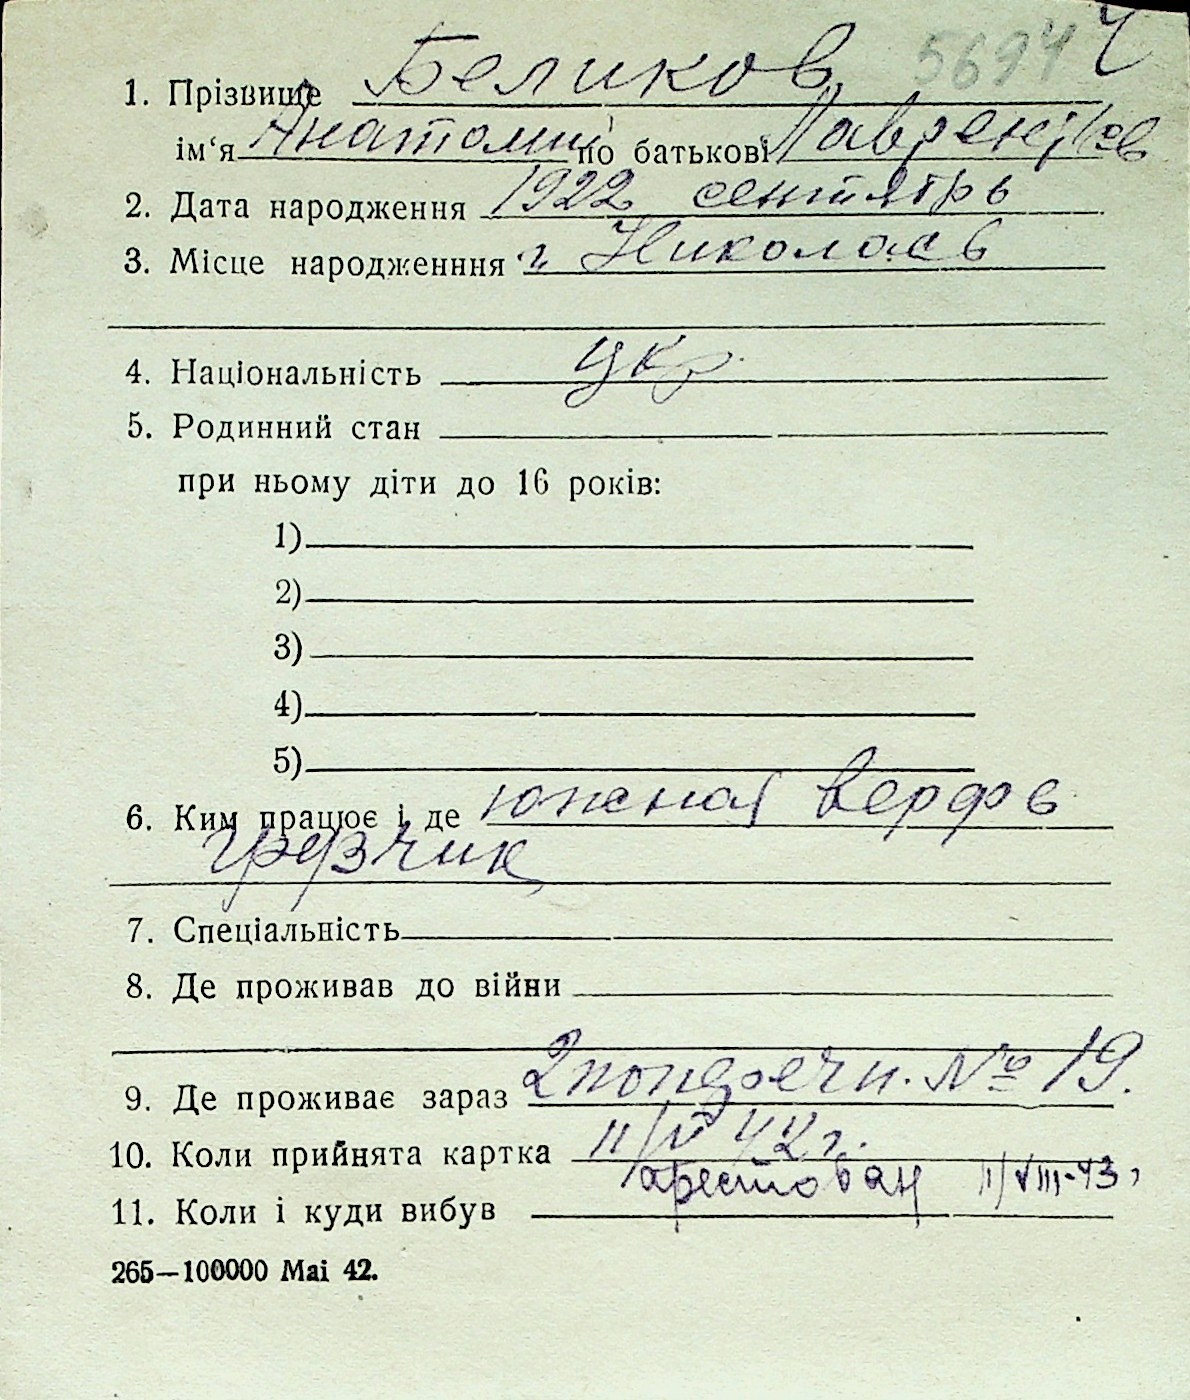 5694 4
1. Прізвище Беликов
ім‘я Анатолий по батькові Лаврентьев
2. Дата народження 1922 сентябрь
3. Місце народженння г. Николаев
4. Національність укр
5. Родинний стан
при ньому діти до 16 років:
1)
2)
3)
4)
5)
6. Ким працює і де южная верфь
грузчик
7. Спеціальність
8. Де проживав до війни
9. Де проживає зараз 2 попереч. № 19.
10. Коли прийнята картка 11/IV 42 г.
арестован 11/VIII-43,
11. Коли і куди вибув
265—100000 Mai 42.